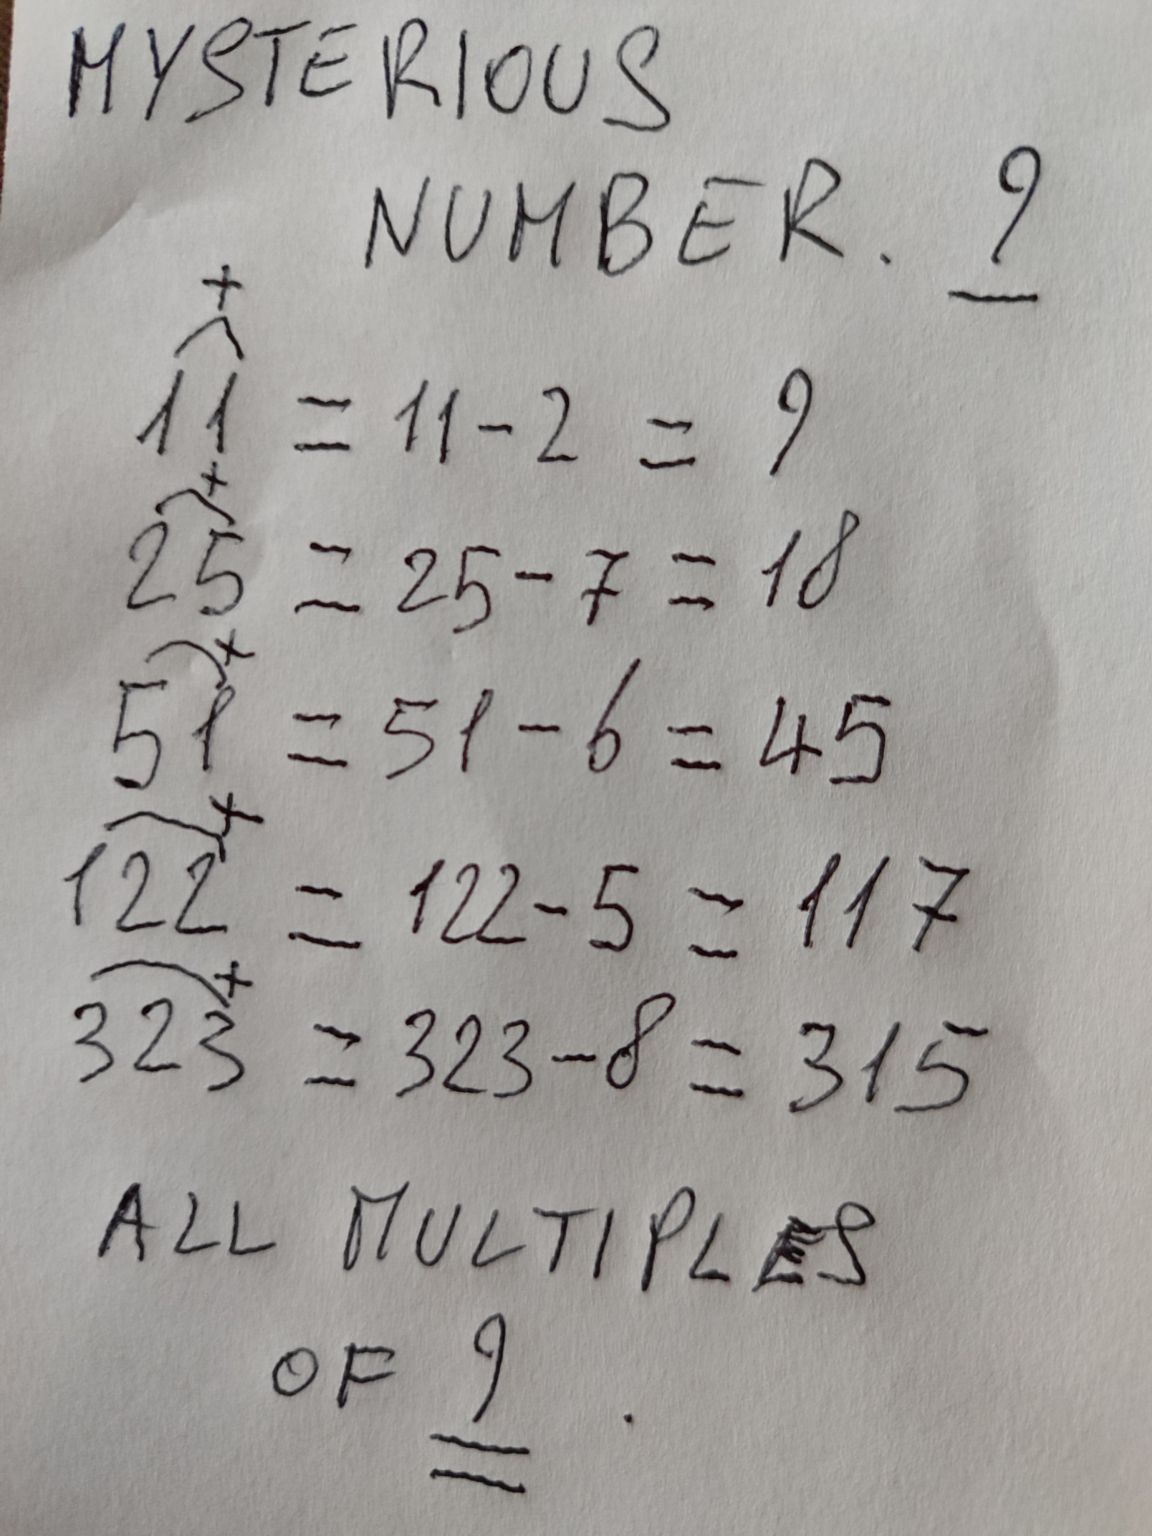 MYSTERIOUS
NUMBER. 9
+
11 = 11-2 = 9
+
25 = 25-7 = 18
+
51 = 51-6 = 45
+
122 = 122-5 = 117
+
323 = 323-8 = 315
ALL MULTIPLES
OF 9.